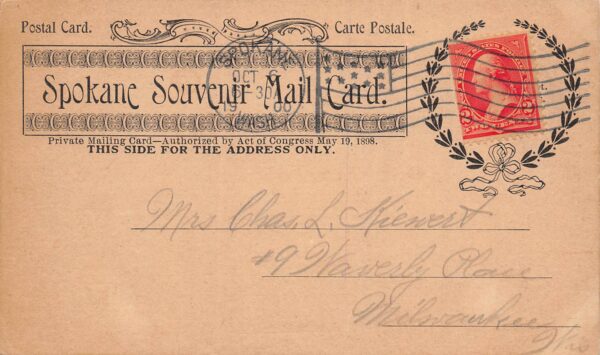 Postal Card. Carte Postale.
SPOKANE
OCT 6
30
WASH.
Spokane Souvenir Mail Card.
Private Mailing Card—Authorized by Act of Congress May 19, 1898.
THIS SIDE FOR THE ADDRESS ONLY.
Mrs Chas. L. Kiewert
#9 Waverly Place
Milwaukee
Wis